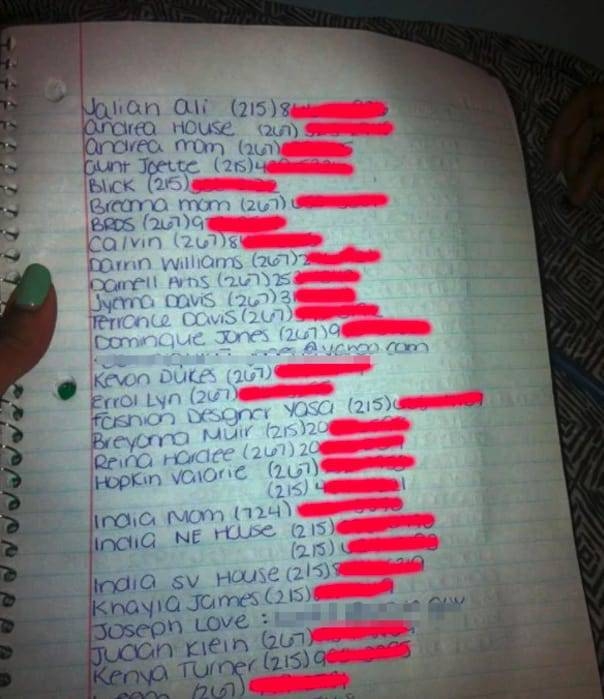 Jalian Ali (215)8
Andrea House (267)
Andrea mom (267)
Aunt Joette (215)4
Blick (215)
Breanna mom (267)
BROS (267)9
Calvin (267)8
Darrin Williams (267)2
Darnell Arns (267)25
Jyenna Davis (267)3
Terrance Davis (267)
Dominque Jones (267)9
@yahoo.com
Kevon Dukes (267)
Errol Lyn (267)
Fashion Designer Yasa (215)
Breyanna Muir (215)20
Reina Hardee (267)20
Hopkin Valarie (267)
(215)
India Mom (724)
India NE House (215)
(215)
India SV House (215)
Khayla James (215)
Joseph Love :
Juddan Klein (267)
Kenya Turner (215)9
(267)